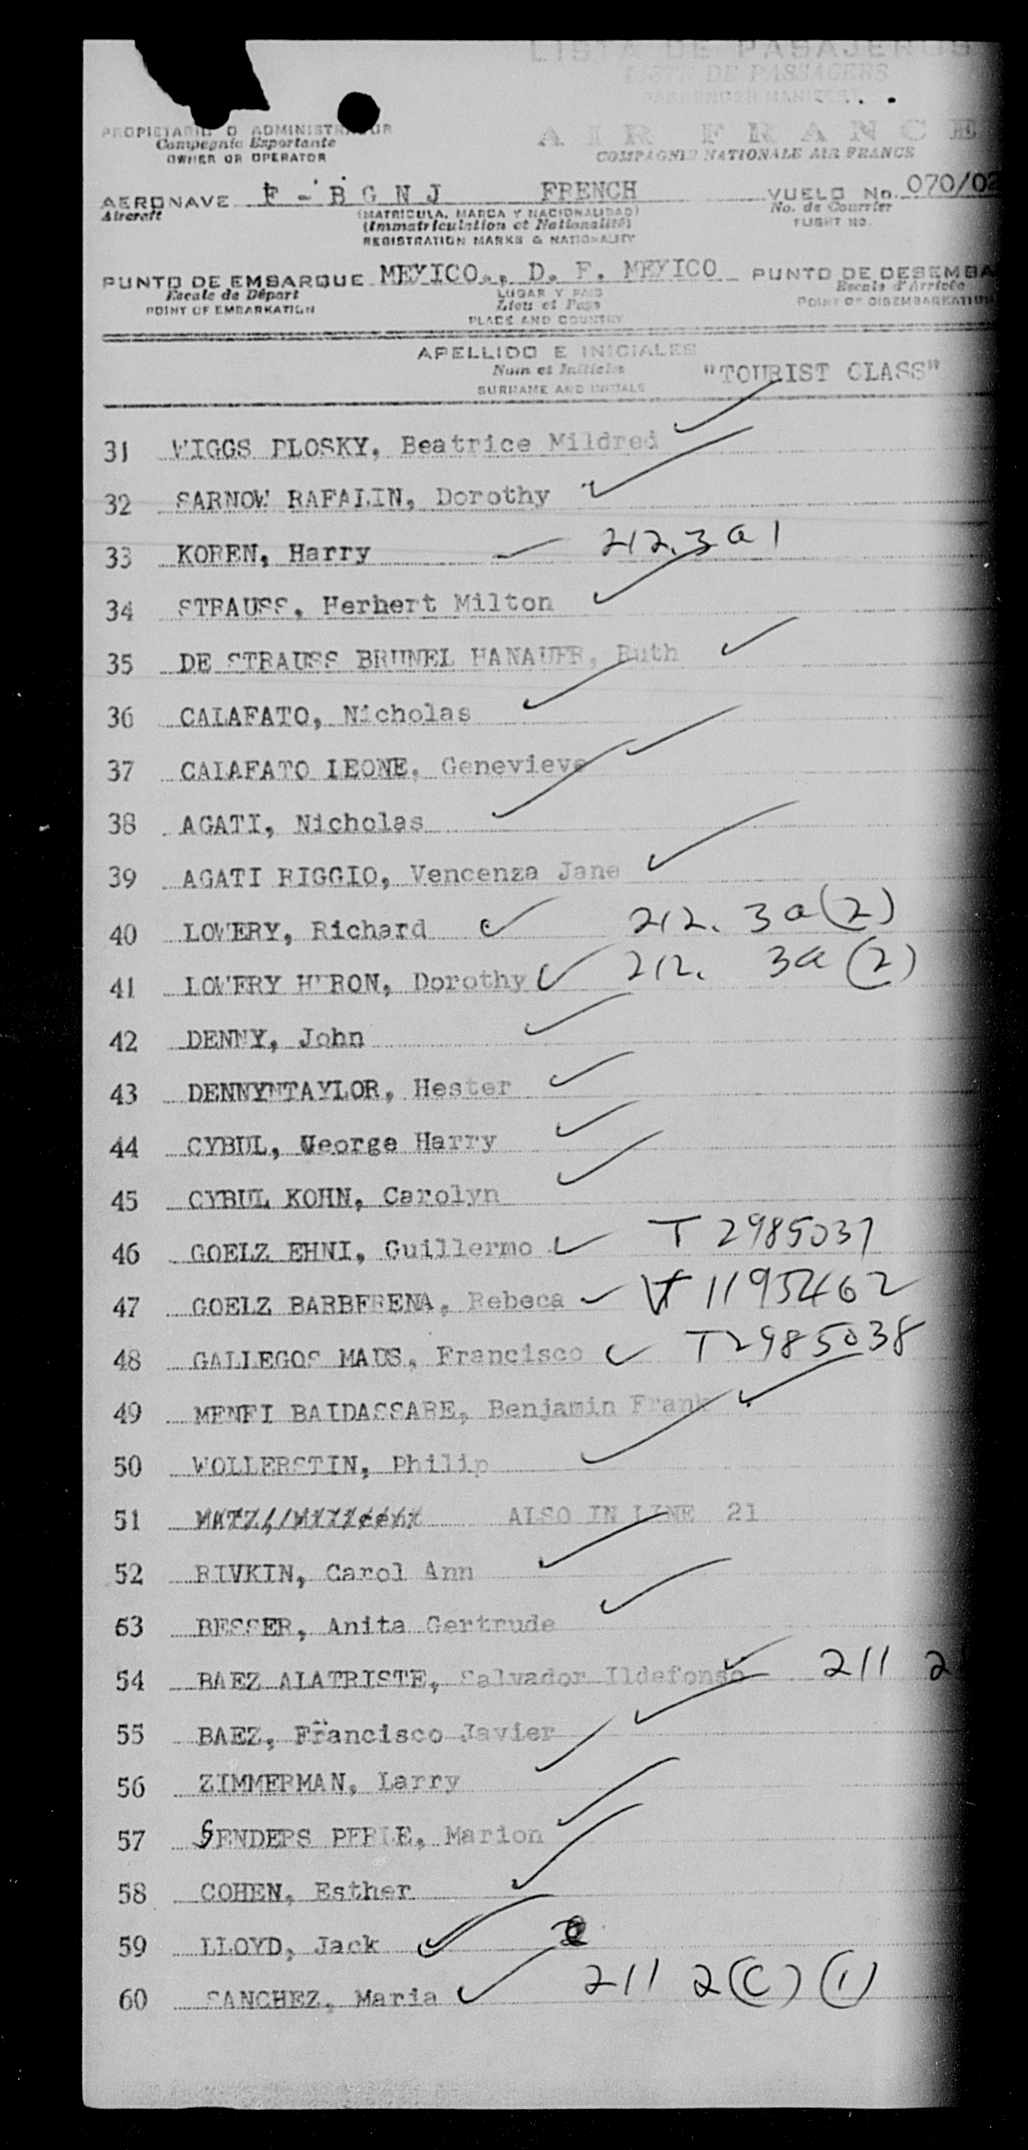 LISTA DE PASAJEROS
LISTE DE PASSAGERS
PASSENGER MANIFEST
PROPIETARIO O ADMINISTRADOR
Compagnie Exportante
OWNER OR OPERATOR
AIR FRANCE
COMPAGNIE NATIONALE AIR FRANCE
AERONAVE F-BGNJ FRENCH VUELO No. 070/02
Aircraft (MATRICULA, MARCA Y NACIONALIDAD) No. de Courrier
(Immatriculation et Nationalité) FLIGHT NO.
REGISTRATION MARKS & NATIONALITY
PUNTO DE EMBARQUE MEXICO., D. F. MEXICO PUNTO DE DESEMBA
Escale de Départ LUGAR Y PAIS Escale d'Arrivée
POINT OF EMBARKATION Lieu et Pays POINT OF DISEMBARKATION
PLACE AND COUNTRY
APELLIDO E INICIALES
Nom et Initiales "TOURIST CLASS"
SURNAME AND INITIALS
31 WIGGS PLOSKY, Beatrice Mildred
32 SARNOW RAFALIN, Dorothy
33 KOREN, Harry 212.3a1
34 STRAUSS, Herbert Milton
35 DE STRAUSS BRUNEL HANAUER, Ruth
36 CALAFATO, Nicholas
37 CALAFATO LEONE, Genevieve
38 AGATI, Nicholas
39 AGATI RIGGIO, Vencenza Jane
40 LOWERY, Richard 212. 3a(2)
41 LOWERY HERON, Dorothy 212. 3a(2)
42 DENNY, John
43 DENNY TAYLOR, Hester
44 CYBUL, George Harry
45 CYBUL KOHN, Carolyn
46 GOELZ EHNI, Guillermo T 2985037
47 GOELZ BARBERENA, Rebeca V 1195462
48 GALLEGOS MAUS, Francisco T2985038
49 MENFI BALDASSARE, Benjamin Frank
50 WOLLERSTIN, Philip
51 ALSO IN LINE 21
52 RIVKIN, Carol Ann
53 BESSER, Anita Gertrude
54 BAEZ ALATRISTE, Salvador Ildefonso 211 2
55 BAEZ, Francisco Javier
56 ZIMMERMAN, Larry
57 SENDERS PERLE, Marion
58 COHEN, Esther
59 LLOYD, Jack
60 SANCHEZ, Maria 211 2(C)(1)